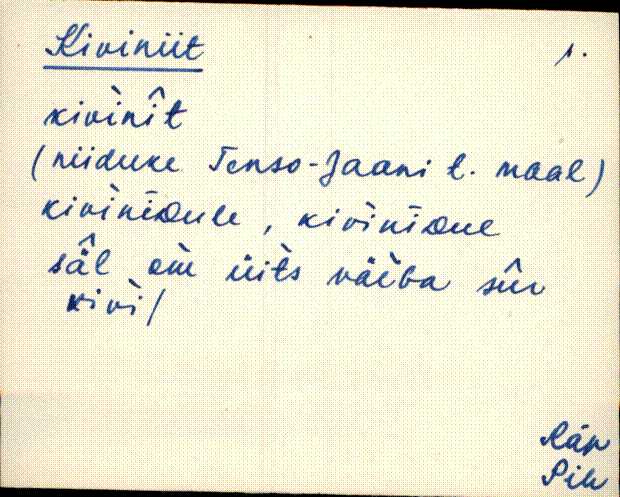 Kiviniit
1.
kivìnî̬t
(niiduke Tenso-Jaani t. maal)
kivìni̮dule, kivìni̮dul
sä̂l om üìts väèba sûr
kivì/
Räp
Sik